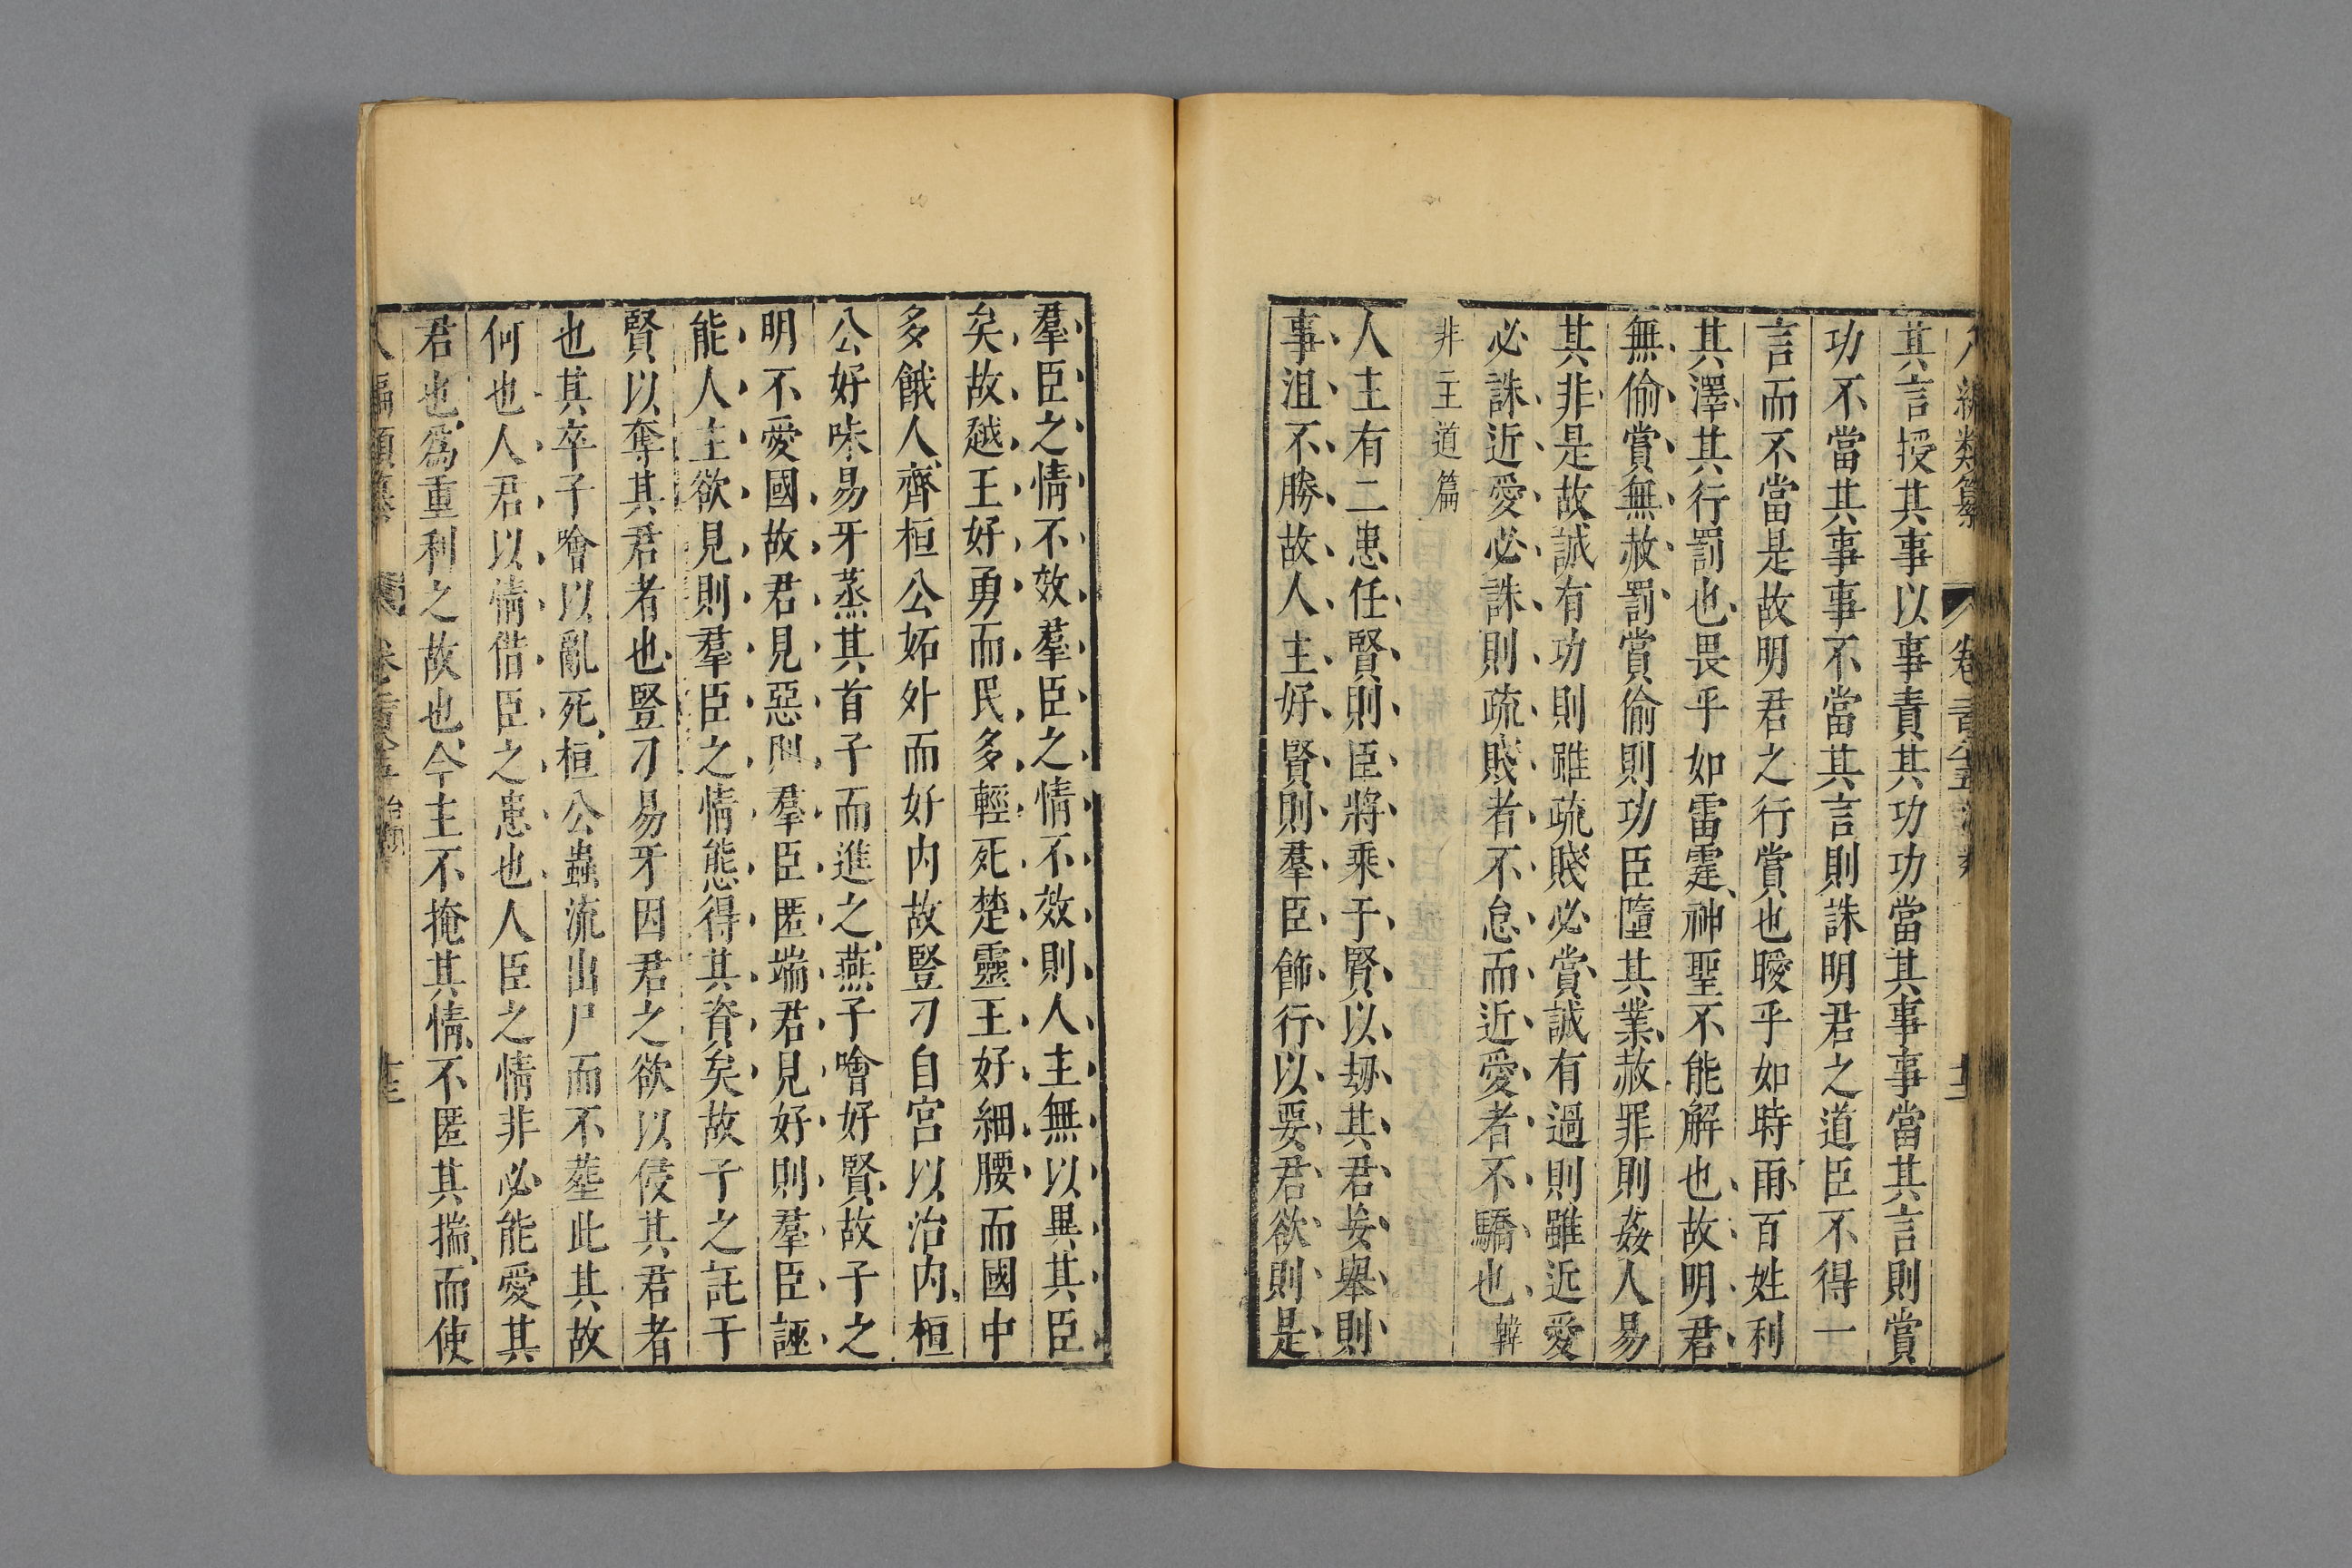 八編類纂 卷
其言授其事以事責其功功當其事事當其言則賞
功不當其事事不當其言則誅明君之道臣不得一
言而不當是故明君之行賞也曖乎如時雨百姓利
其澤其行罰也畏乎如雷霆神聖不能解也故明君
無偷賞無赦罰賞偷則功臣墮其業赦罪則姦人易
其非是故誠有功則雖疏賤必賞誠有過則雖近愛
必誅近愛必誅則疏賤者不怠而近愛者不驕也韓
非主道篇
人主有二患任賢則臣將乘于賢以刼其君妄舉則
事沮不勝故人主好賢則羣臣飾行以要君欲則是
羣臣之情不效羣臣之情不效則人主無以異其臣
矣故越王好勇而民多輕死楚靈王好細腰而國中
多餓人齊桓公妬外而好内故豎刁自宮以治内桓
公好味易牙蒸其首子而進之燕子噲好賢故子之
明不愛國故君見惡則羣臣匿端君見好則羣臣誣
能人主欲見則羣臣之情態得其資矣故子之託于
賢以奪其君者也豎刁易牙因君之欲以侵其君者
也其卒子噲以亂死桓公蟲流出尸而不塟此其故
何也人君以情借臣之患也人臣之情非必能愛其
君也爲重利之故也今主不掩其情不匿其揣而使
編類纂